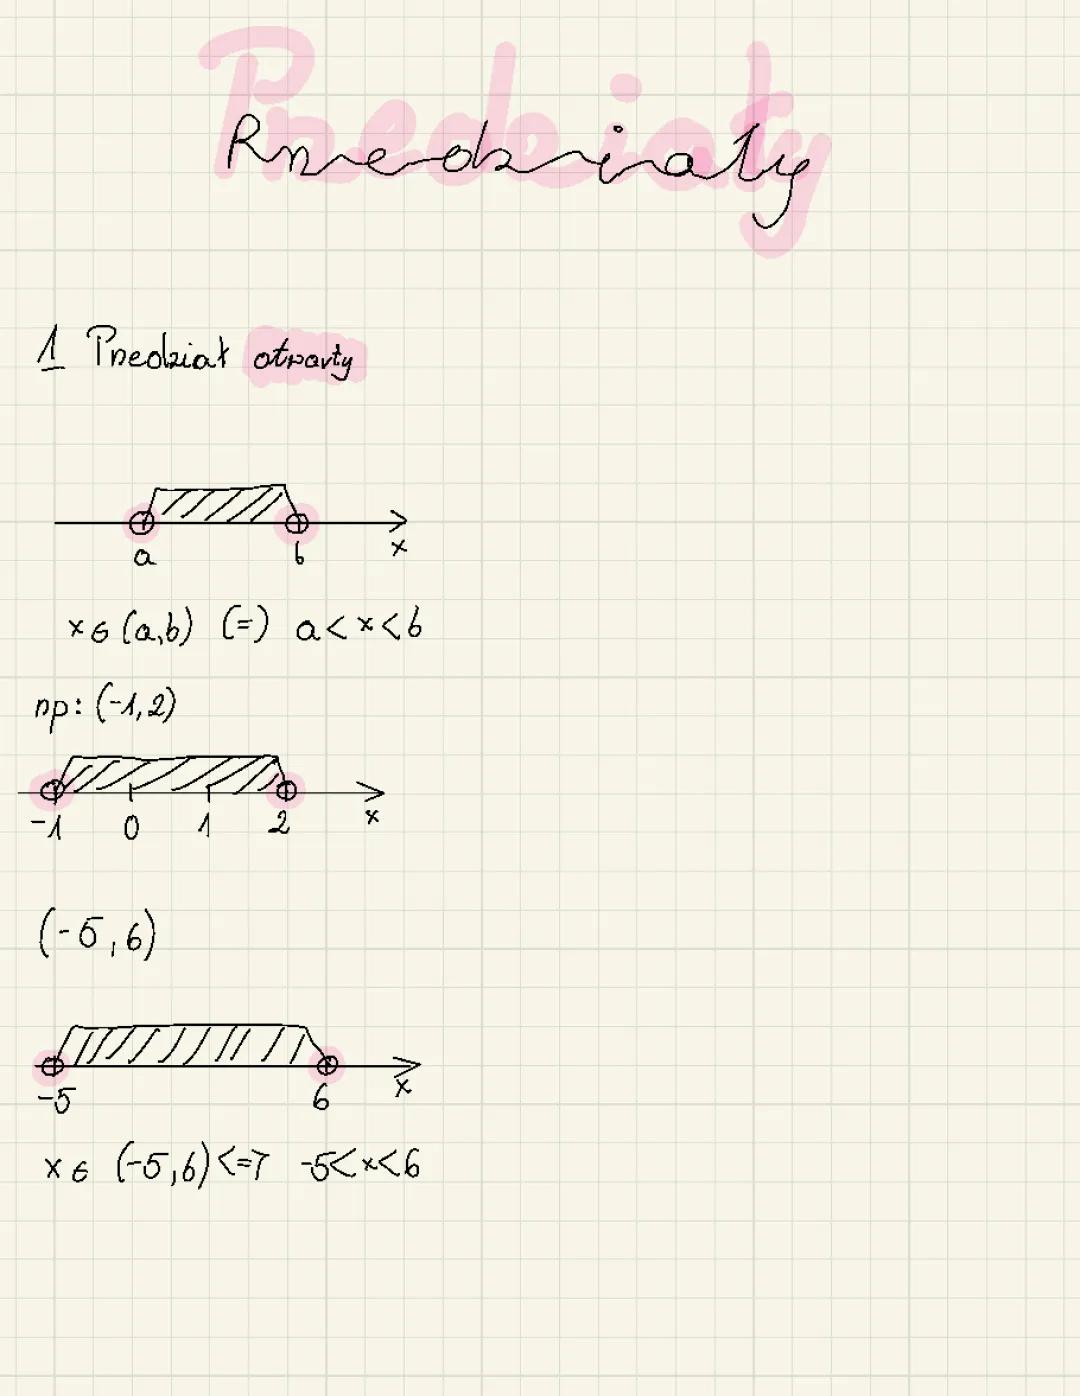 Przedziały
1 Przedział otwarty
a b x
x ∈ (a,b) (=) a < x < b
np: (-1,2)
-1 0 1 2 x
(-5,6)
-5 6 x
x ∈ (-5,6) <=> -5 < x < 6